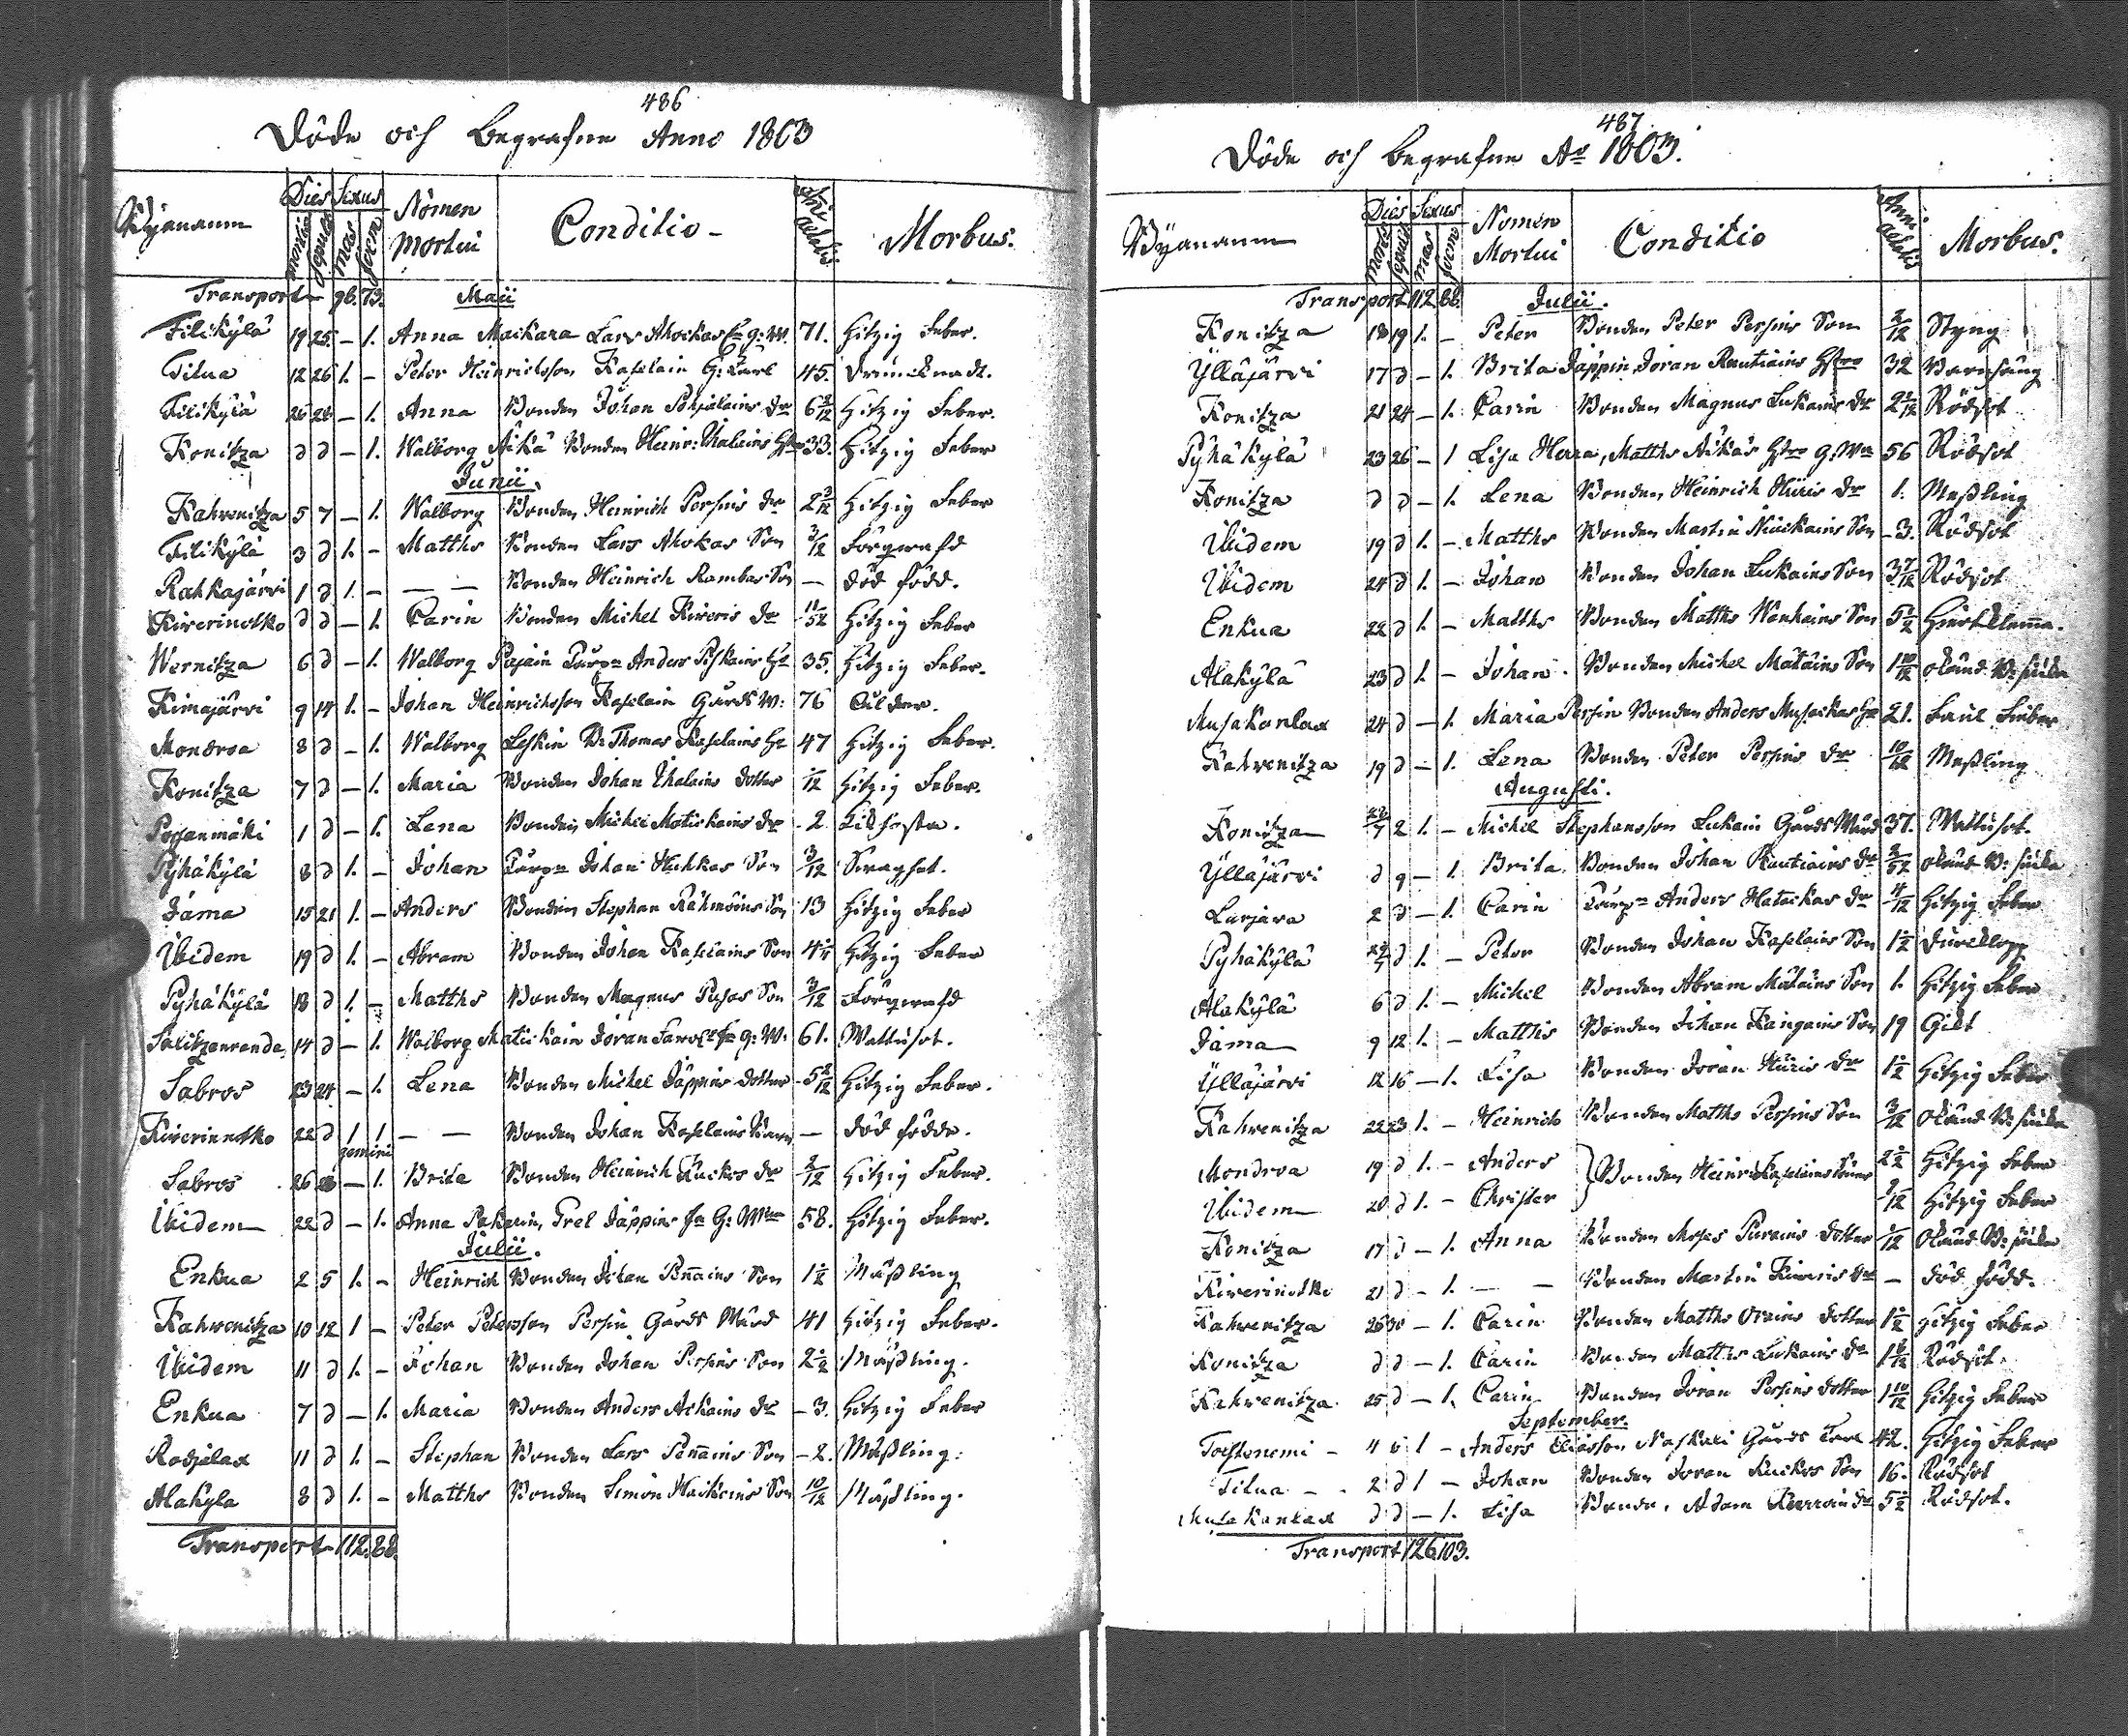 486
Döde och Begrafne Anno 1803
Byanamn Dies Sexus Nomen Mortui Conditio Anni aetatis Morbus.
mortis sepult mas foem
Transport 96. 73. Maii
Tilikylä 19 25. – 1. Anna Maickara Lars Ahokas Enka g: W. 71. Hitzig Feber.
Titua 12 26 1. – Peter Heinrichsson Kaselain G: Karl 45. Drunknadt.
Tilikylä 26 28 – 1. Anna Bonden Johan Pohjalains dr 6 2/12 Hitzig Feber.
Konitza d d – 1. Walborg Äikä Bonden Heinr: Ihalains Hstru 33. Hitzig Feber
Junii.
Kahwenitza 5 7 – 1. Walborg Bonden Heinrich Persins dr 2 3/12 Hitzig Feber
Tilikylä 3 d 1. – Matths Bonden Lars Ahokas Son 3/12 Förqwafd
Rahkajärvi 1 d 1. – — — Bonden Heinrich Rambas Son — död född.
Kiverinotko d d – 1. Carin Bonden Michel Kiveris dr 11/52 Hitzig Feber
Wernitza 6 d – 1. Walborg Pajain Torpn Anders Piskains Ha 35. Hitzig Feber.
Kimajärvi 9 14 1. – Johan Heinrichsson Kaselain Gårds W: 76 Ålder.
Mondroa 8 d – 1. Walborg Leskin B: Thomas Kaselains Ha 47 Hitzig Feber.
Konitza 7 d – 1. Maria Bonden Johan Ihalains dotter 1/12 Hitzig Feber.
Porsanmäki 1 d – 1. Lena Bonden Michel Matickains dr 2 Kikhosta.
Pyhäkylä 8 d 1. – Johan Torpn Johan Huhkas Son 3/12 Swagsot.
Jama 15 21 1. – Anders Bonden Stephan Rähmöins Son 13 Hitzig Feber
Ibidem 19 d 1. – Abram Bonden Johan Kaselains Son 4 1/2 Hitzig Feber
Pyhäkylä 18 d 1. – Matths Bonden Magnus Pusas Son 3/12 Förqwafd
Salitzenranda 14 d – 1. Walborg Matickain Joran g: W: 61. Wattusot.
Sabros 23 24 – 1. Lena Bonden Michel Jäppins dotter 5 2/12 Hitzig Feber.
Kiverinnotko 22 d 1 1 — — Bonden Johan Kaselains Barn — död födde.
gemini
Sabros 26 28 – 1. Brita Bonden Heinrich Kuckos dr 2/12 Hitzig Feber.
Ibidem 22 d – 1. Anna Pakarin, Jäppins G: 58. Hitzig Feber.
Julii.
Enkua 2 5 1. – Heinrich Bonden Johan Pennains Son 1 1/2 Mäßling
Kahwenitza 10 12 1 – Peter Petersson Persin Gårds Wärd 41 Hitzig Feber.
Ibidem 11 d 1. – Johan Bonden Johan Persins Son 2 1/2 Mäßling.
Enkua 7 d – 1. Maria Bonden Anders Ackains dr – 3. Hitzig Feber
Radjalax 11 d 1. – Stephan Bonden Lars Pennains Son – 2. Mäßling:
Alakyla 8 d 1. – Matths Bonden Simon Haikains Son 10/12 Mäßling.
Transport 112. 88.
487
Döde och begrafne Ao 1803.
Byanamn Dies Sexus Nomen Mortui Conditio Anni aetatis Morbus.
mortis sepult mas foem
Transport 112. 88. Julii.
Konitza 18 19 1. – Peter Bonden Peter Persins Son 2/12 Styng
Ylläjärvi 17 d – 1. Brita Jäppin, Joran Rautiains Hstru 32 Barnsäng
Konitza 21 24 – 1. Carin Bonden Magnus Lukains dr 2 2/12 Rödsot
Pyhäkylä 23 26 – 1 Lisa Herra, Matths Äikäs Hstru g: Wa 56 Rödsot
Konitza d d – 1. Lena Bonden Heinrich Hüris dr 1. Meßling
Ibidem 19 d 1. – Matths Bonden Martin Son – 3. Rödsot
Ibidem 24 d 1. – Johan Bonden Johan Lukains Son 3 7/12 Rödsot
Enkua 22 d 1. – Matths Bonden Matths Wankains Son 5 1/2 Hiertklemma.
Alakylä 23 d 1. – Johan Bonden Michel Mätäins Son 1 10/12 okänd B: siuka
Musakanlax 24 d – 1. Maria Persin Bonden Anders Musackas Ha 21. Faul Feber
Kahwenitza 19 d – 1. Lena Bonden Peter Persins dr 10/12 Meßling
Augusti.
Konitza 28/7 2 1. – Michel Stephansson Lukain Gårds Wärd 37. Wattusot.
Ylläjärvi d 9 – 1. Brita Bonden Johan Rautiains dr 2/52 okänd B: siuka
Larjava 2 d – 1. Carin Torpn Anders Hatackas dr 4/12 Hitzig Feber
Pyhäkylä 29/7 d 1. – Peter Bonden Johan Kaselains Son 1 1/2 Durcklopp
Alakylä 6 d 1. – Michel Bonden Abram Mätäins Son 1. Hitzig Feber
Jama 9 12 1. – Matths Bonden Johan Kangains Son 19 Gikt
Ylläjärvi 12 16 – 1. Lisa Bonden Joran Hüris dr 1 1/2 Hitzig Feber
Kahwenitza 22 23 1. – Heinrich Bonden Matths Persins Son 3/12 okänd B: siuka
Mondroa 19 d 1. – Anders } Bonden Heinrich Kaselains Söner 2 1/2 Hitzig Feber
Ibidem 20 d 1. – Christer 9/12 Hitzig Feber
Konitza 17 d – 1. Anna Bonden Moses Purains dotter 1/12 okänd B: siuka
Kiverinotko 21 d – 1. — — Bonden Martin Kiveris dr — död född.
Kahwenitza 26 30 – 1. Carin Bonden Matths Orains dotter 1 1/2 Hitzig Feber
Konitza d d – 1. Carin Bonden Matths Lukains dr 1 8/12 Rödsot.
Kahwenitza 25 d – 1. Carin Bonden Joran Persins dotter 1 10/12 Hitzig Feber
September.
Tostonemi – 4 6 1 – Anders Eliasson Naskali Gårds Karl 42. Hitzig Feber
Titua – 2 d 1 – Johan Bonden Joran Kuckos Son 16. Rödsot
Musakanlax d d – 1. Lisa Bonde. Adam dr 5 1/2 Rödsot.
Transport 126 103.